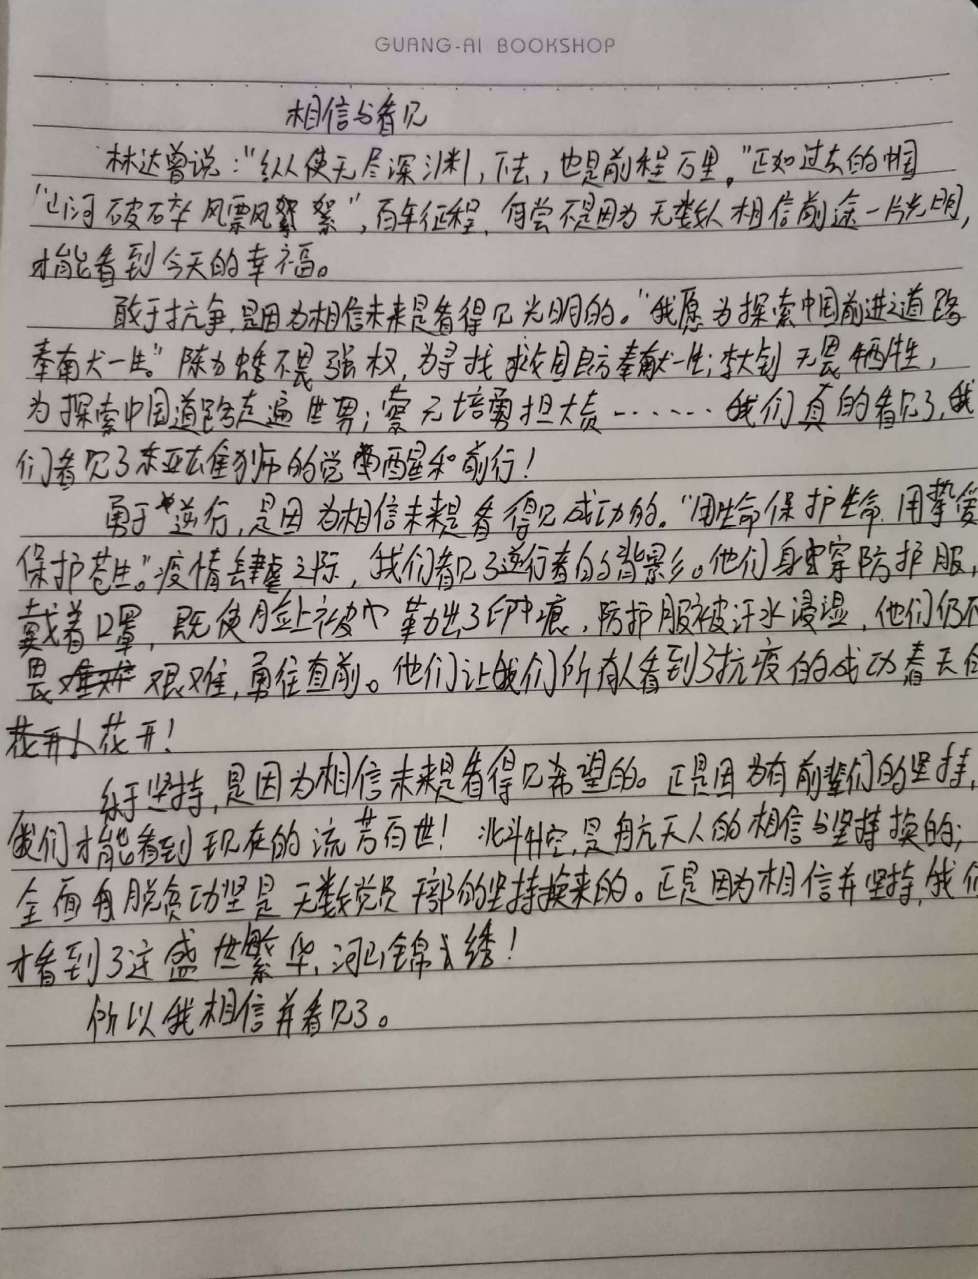 GUANG-AI BOOKSHOP
相信与看见
林达曾说："纵使无尽深渊,下去,也是前程万里。"正如过去的中国
"山河破碎风飘风絮絮",百年征程,何尝不是因为无数人相信前途一片光明,
才能看到今天的幸福。
敢于抗争,是因为相信未来是看得见光明的。"我愿为探索中国前进之道路
奉献一生。"陈为蟾不畏强权,为寻找救国良方奉献一生;李大钊无畏牺牲,
为探索中国道路走遍世界;蔡元培勇担大责……我们真的看见了,我
们看见了东亚雄狮的觉醒和前行!
勇于逆行,是因为相信未来是看得见成功的。"用生命保护生命,用挚爱
保护苍生。"疫情肆虐之际,我们看见了逆行者的背影。他们身穿防护服,
戴着口罩,既使脸上被勒出了印痕,防护服被汗水浸湿,他们仍不
畏艰难,勇往直前。他们让我们所有人看到了抗疫的成功春天的
花开!
乐于坚持,是因为相信未来是看得见希望的。正是因为有前辈们的坚持,
我们才能看到现在的流芳百世!北斗升空,是航天人的相信与坚持换的;
全面脱贫功坚是无数党员干部的坚持换来的。正是因为相信并坚持,我们
才看到了这盛世繁华,河山锦绣!
所以我相信并看见了。